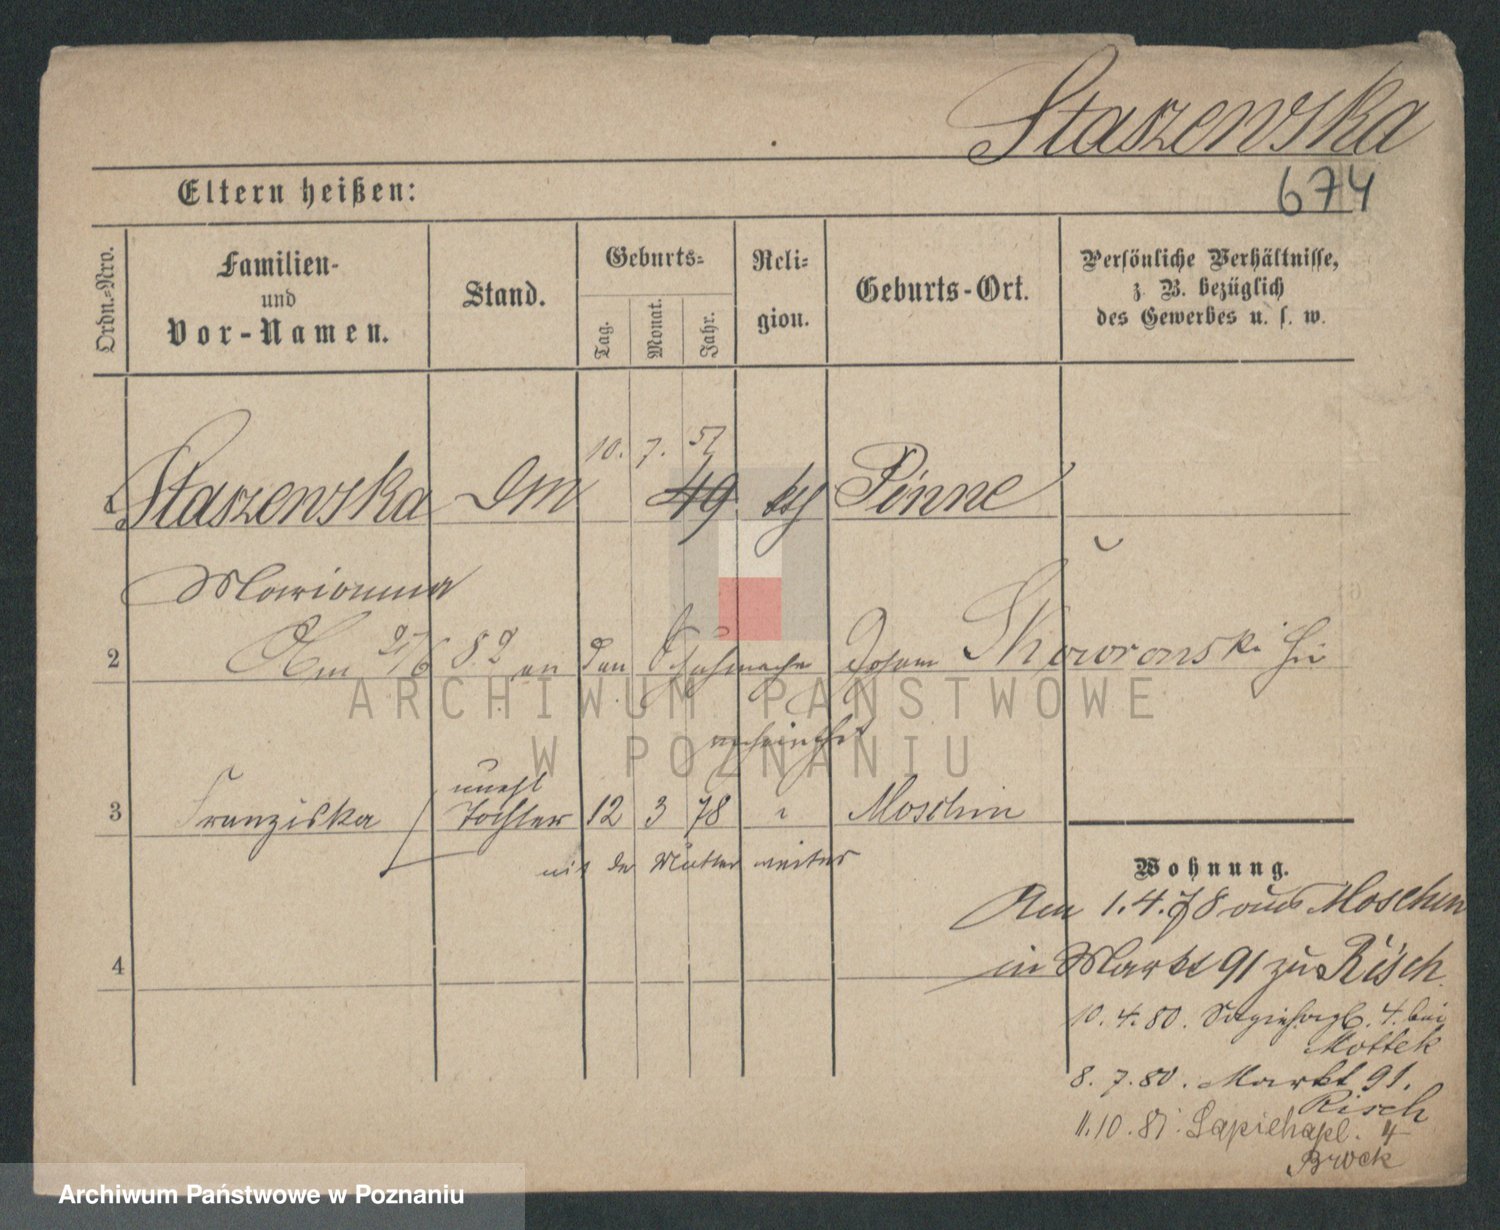 Staszewska
674
Eltern heißen:
Ordn.=Nro.
Familien-
und
Vor-Namen.
Stand.
Geburts=
Tag.
Monat.
Jahr.
Reli=
gion.
Geburts-Ort.
Persönliche Verhältnisse,
z. B. bezüglich
des Gewerbes u. s. w.
10. 7. 57
1 Staszewska 49 kth Pinne
Marianna
2 Am 21/6 82 an den Schuhmacher Johann Skoworonski hier
verheirathet
unehl
3 Franziska Tochter 12 3 78 " Moschin
mit der Mutter weiter
Wohnung.
4
Am 1.4.78 aus Moschin
in Markt 91 zu Risch
10. 4. 80. Sapiehapl. 4. bei
Mottek
8. 7. 80. Markt 91.
Risch
11.10.81. Sapiehapl. 4
Brock
ARCHIWUM PAŃSTWOWE
W POZNANIU
Archiwum Państwowe w Poznaniu